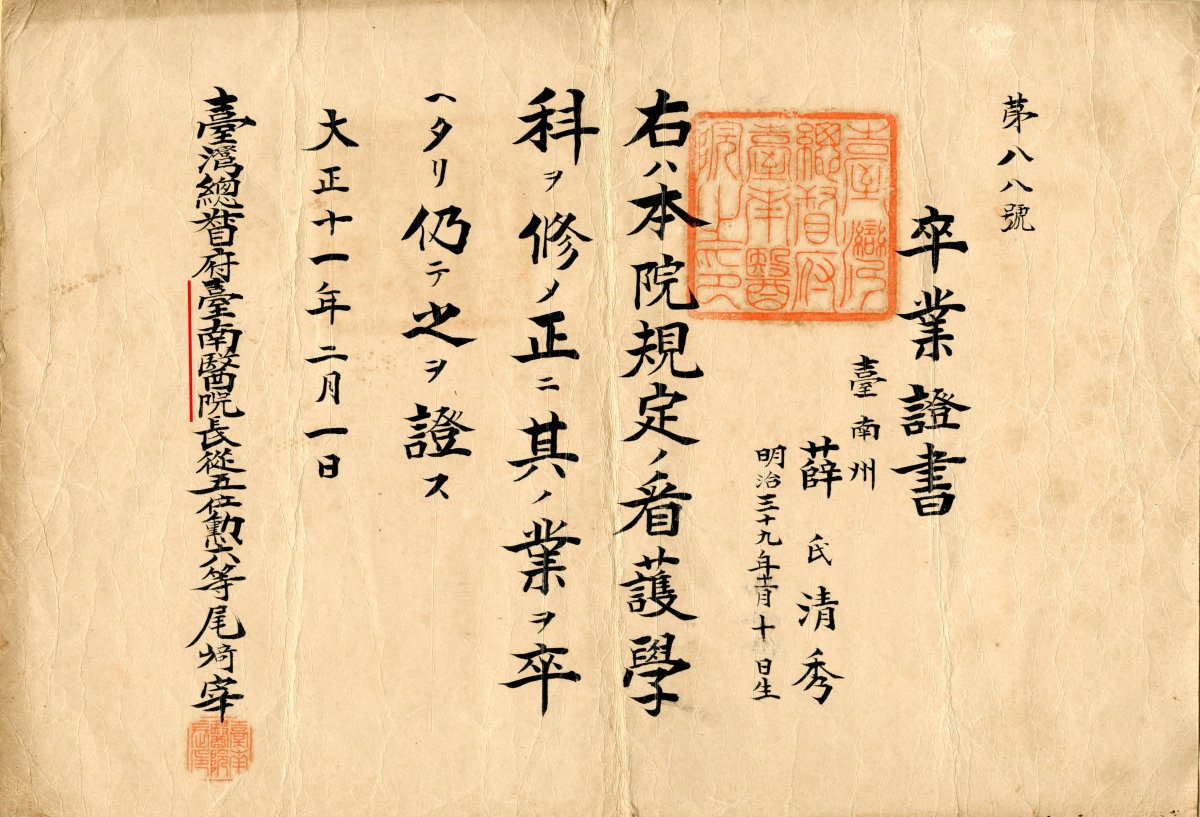 第八八號
卒業證書
臺南州
薛氏清秀
明治三十九年月十日生
臺灣總督府臺南醫院之印
右ハ本院規定ノ看護學
科ヲ修メ正ニ其ノ業ヲ卒
ヘタリ仍テ之ヲ證ス
大正十一年二月一日
臺灣總督府臺南醫院長從五位勳六等尾崎宰
臺南醫院長印